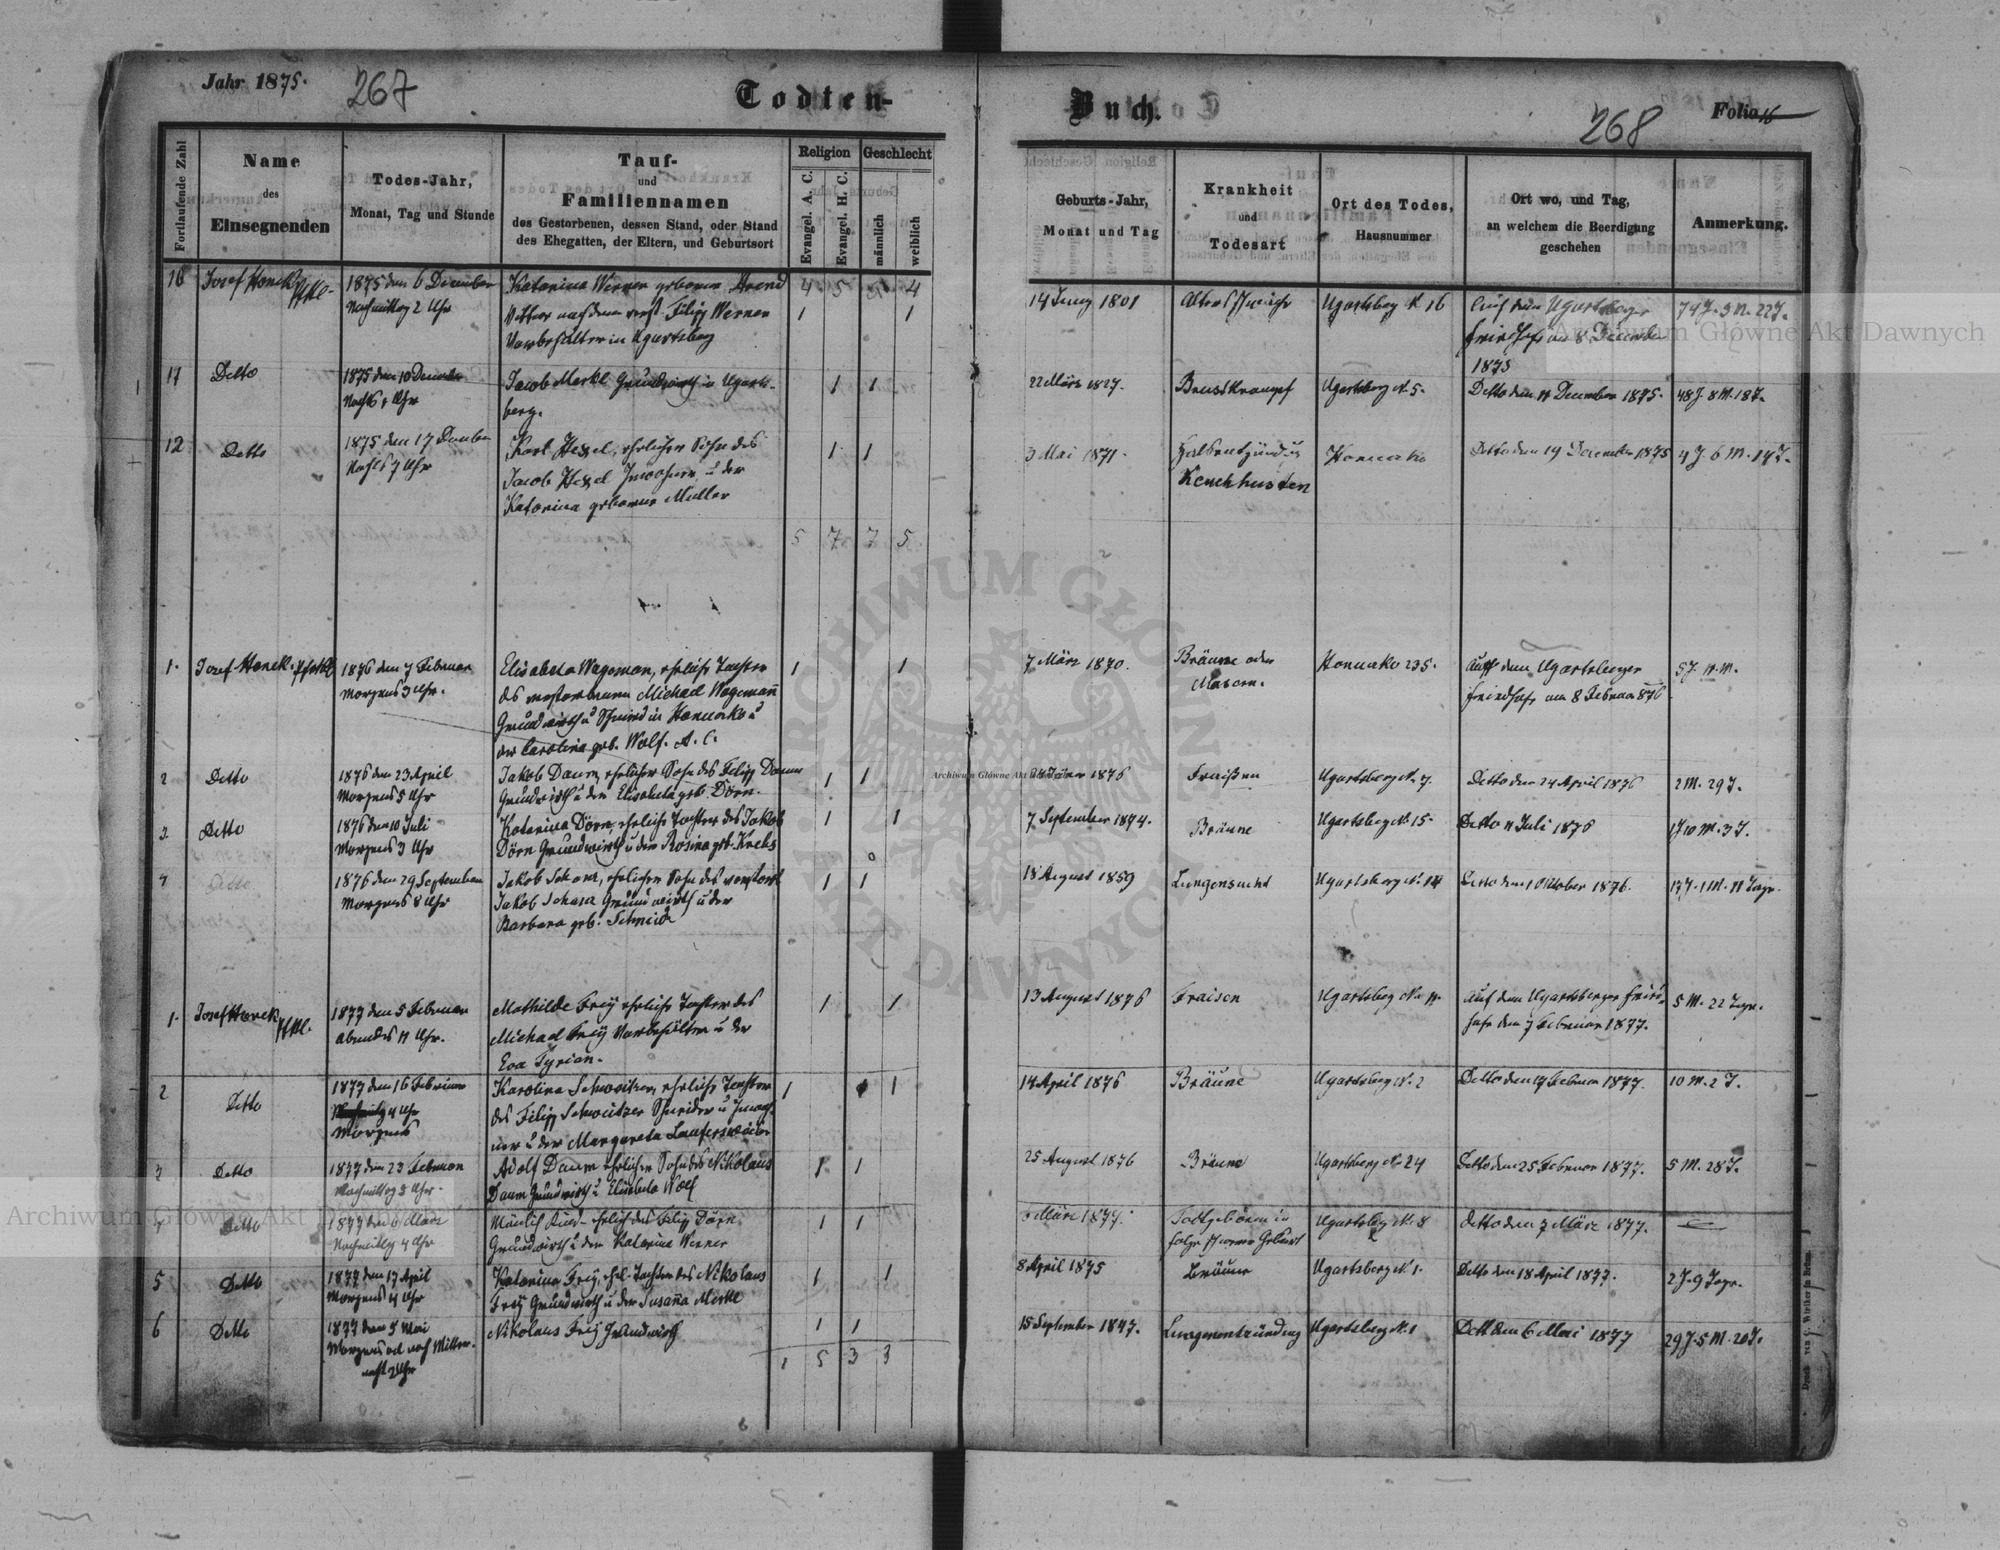 Jahr 1875.
267
Todten-
Buch.
268
Folio 16
Fortlaufende Zahl
Name
des
Einsegnenden
Todes-Jahr,
Monat, Tag und Stunde
Tauf-
und
Familiennamen
des Gestorbenen, dessen Stand, oder Stand
des Ehegatten, der Eltern, und Geburtsort
Religion
Evangel. A. C.
Evangel. H. C.
Geschlecht
männlich
weiblich
Geburts-Jahr,
Monat und Tag
Krankheit
und
Todesart
Ort des Todes,
Hausnummer
Ort wo, und Tag,
an welchem die Beerdigung
geschehen
Anmerkung.
10 Josef Honek 1875 den 6 December Katarina Werner geborene Arend 4 5 5 4
Nachmittag 2 Uhr Witwe nach dem verst. Filipp Werner 1 1
Vorbehälter in Ugartsberg
1801 Altersschwäche Ugartsberg N 16 Auf dem Ugartsberger 74 J. 5 M. 22 T.
Friedhofe am 8 December
1875
11 Detto 1875 den 10 December Jacob Merkl Grundwirth in Ugarts- 1 1
Nachts Uhr berg.
22 März 1827. Brustkrampf Ugartsberg N. 5. Detto den 11 December 1875. 48 J. 8 M. 18 T.
12 Detto 1875 den 17 Karl Hessel, ehelicher Sohn des 1 1
Nachts 7 Uhr Jacob Hessel Inwohners u der
Katarina geborene Muller
3 Mai 1871. Halsentzündung Konuczko Detto den 19 December 1875 4 J. 6 M. 14 T.
Keuchhusten
5 7 7 5
1. Josef Honek 1876 den 7 Februar Elisabeta Wageman, eheliche Tochter 1 1
Morgens 3 Uhr. des verstorbenen Michael Wagemann
Grundwirth u Schmied in Konuczko u
der Carolina geb. Wolf. A. C.
7 März 1870. Bräune oder Konuczko 235. Auf dem Ugartsberger 5 J. 11 M.
Masern. Friedhofe am 8 Februar 876
2 Detto 1876 den 23 April Jakob Daum, ehelicher Sohn des Filipp Daum 1 1
Morgens 5 Uhr Grundwirth u der Elisabeta geb. Dörn.
Jäner 1876 Fraißen Ugartsberg N. 7. Detto den 24 April 1876 2 M. 29 T.
3. Detto 1876 den 10 Juli Katarina Dörn, eheliche Tochter des Jakob 1 1
Morgens 3 Uhr Dörn Grundwirth u der Rosina geb. Krebs
7 September 1874. Bräune Ugartsberg N. 15. Detto 11 Juli 1876 1 J 10 M. 3 T.
4 Detto 1876 den 29 September Jakob Schanz, ehelicher Sohn des verstorb 1 1
Morgens 8 Uhr Jakob Schanz Grundwirth u der
Barbara geb. Schmidt
18 August 1859 Lungensucht Ugartsberg N. 14 Detto den 1 Oktober 1876. 17 J. 1 M. 11 Tage.
1. Josef Honek 1877 den 5 Februar Mathilde Frey eheliche Tochter des 1 1
abends 11 Uhr. Michael Frey Vorbehälter u der
Eva Tyrian.
13 August 1876 Fraisen Ugartsberg N. 11. Auf dem Ugartsberger Fried- 5 M. 22 Tage.
hofe den 7 Februar 1877.
2 Detto 1877 den 16 Februar Karolina Schweitzer, eheliche Tochter 1 1
4 Uhr des Filipp Schweitzer Schneider u Inwoh-
Morgens ner u der Margareta Laufersweiler
14 April 1876 Bräune Ugartsberg N. 2 Detto den 17 Februar 1877. 10 M. 2 T.
3 Detto 1877 den 23 Februar Adolf Daum ehelicher Sohn des Nikolaus 1 1
Nachmittag 3 Uhr. Daum Grundwirth u Elisabeta Wolf
25 August 1876 Bräune Ugartsberg N. 24 Detto den 25 Februar 1877. 5 M. 28 T.
4 Detto 1877 den 6 März Mänlich Kind ehelich des Filip Dörn 1 1
Nachmittag 4 Uhr Grundwirth u der Katarina Werner
6 März 1877. Todtgeboren in Ugartsberg N. 8 detto den 7 März 1877.
folge schwerer Geburt
5 Detto 1877 den 17 April Katarina Frey, ehel. Tochter des Nikolaus 1 1
Morgens 4 Uhr Frey Grundwirth u der Susanna Merkl
8 April 1875 Bräune Ugartsberg N. 1. Detto den 18 April 1877. 2 J. 9 Tage.
6 Detto 1877 den 5 Mai Nikolaus Frey Grundwirth 1 1
Morgens nach Mitter-
nacht 2 Uhr
15 September 1847. Lungenentzündung Ugartsberg N. 1 Detto den 6 Mai 1877 29 J. 5 M. 20 T.
1 5 3 3
6
Archiwum Główne Akt Dawnych
ARCHIWUM GŁÓWNE AKT DAWNYCH
Archiwum Główne Akt Dawnych
Archiwum Główne Akt Dawnych